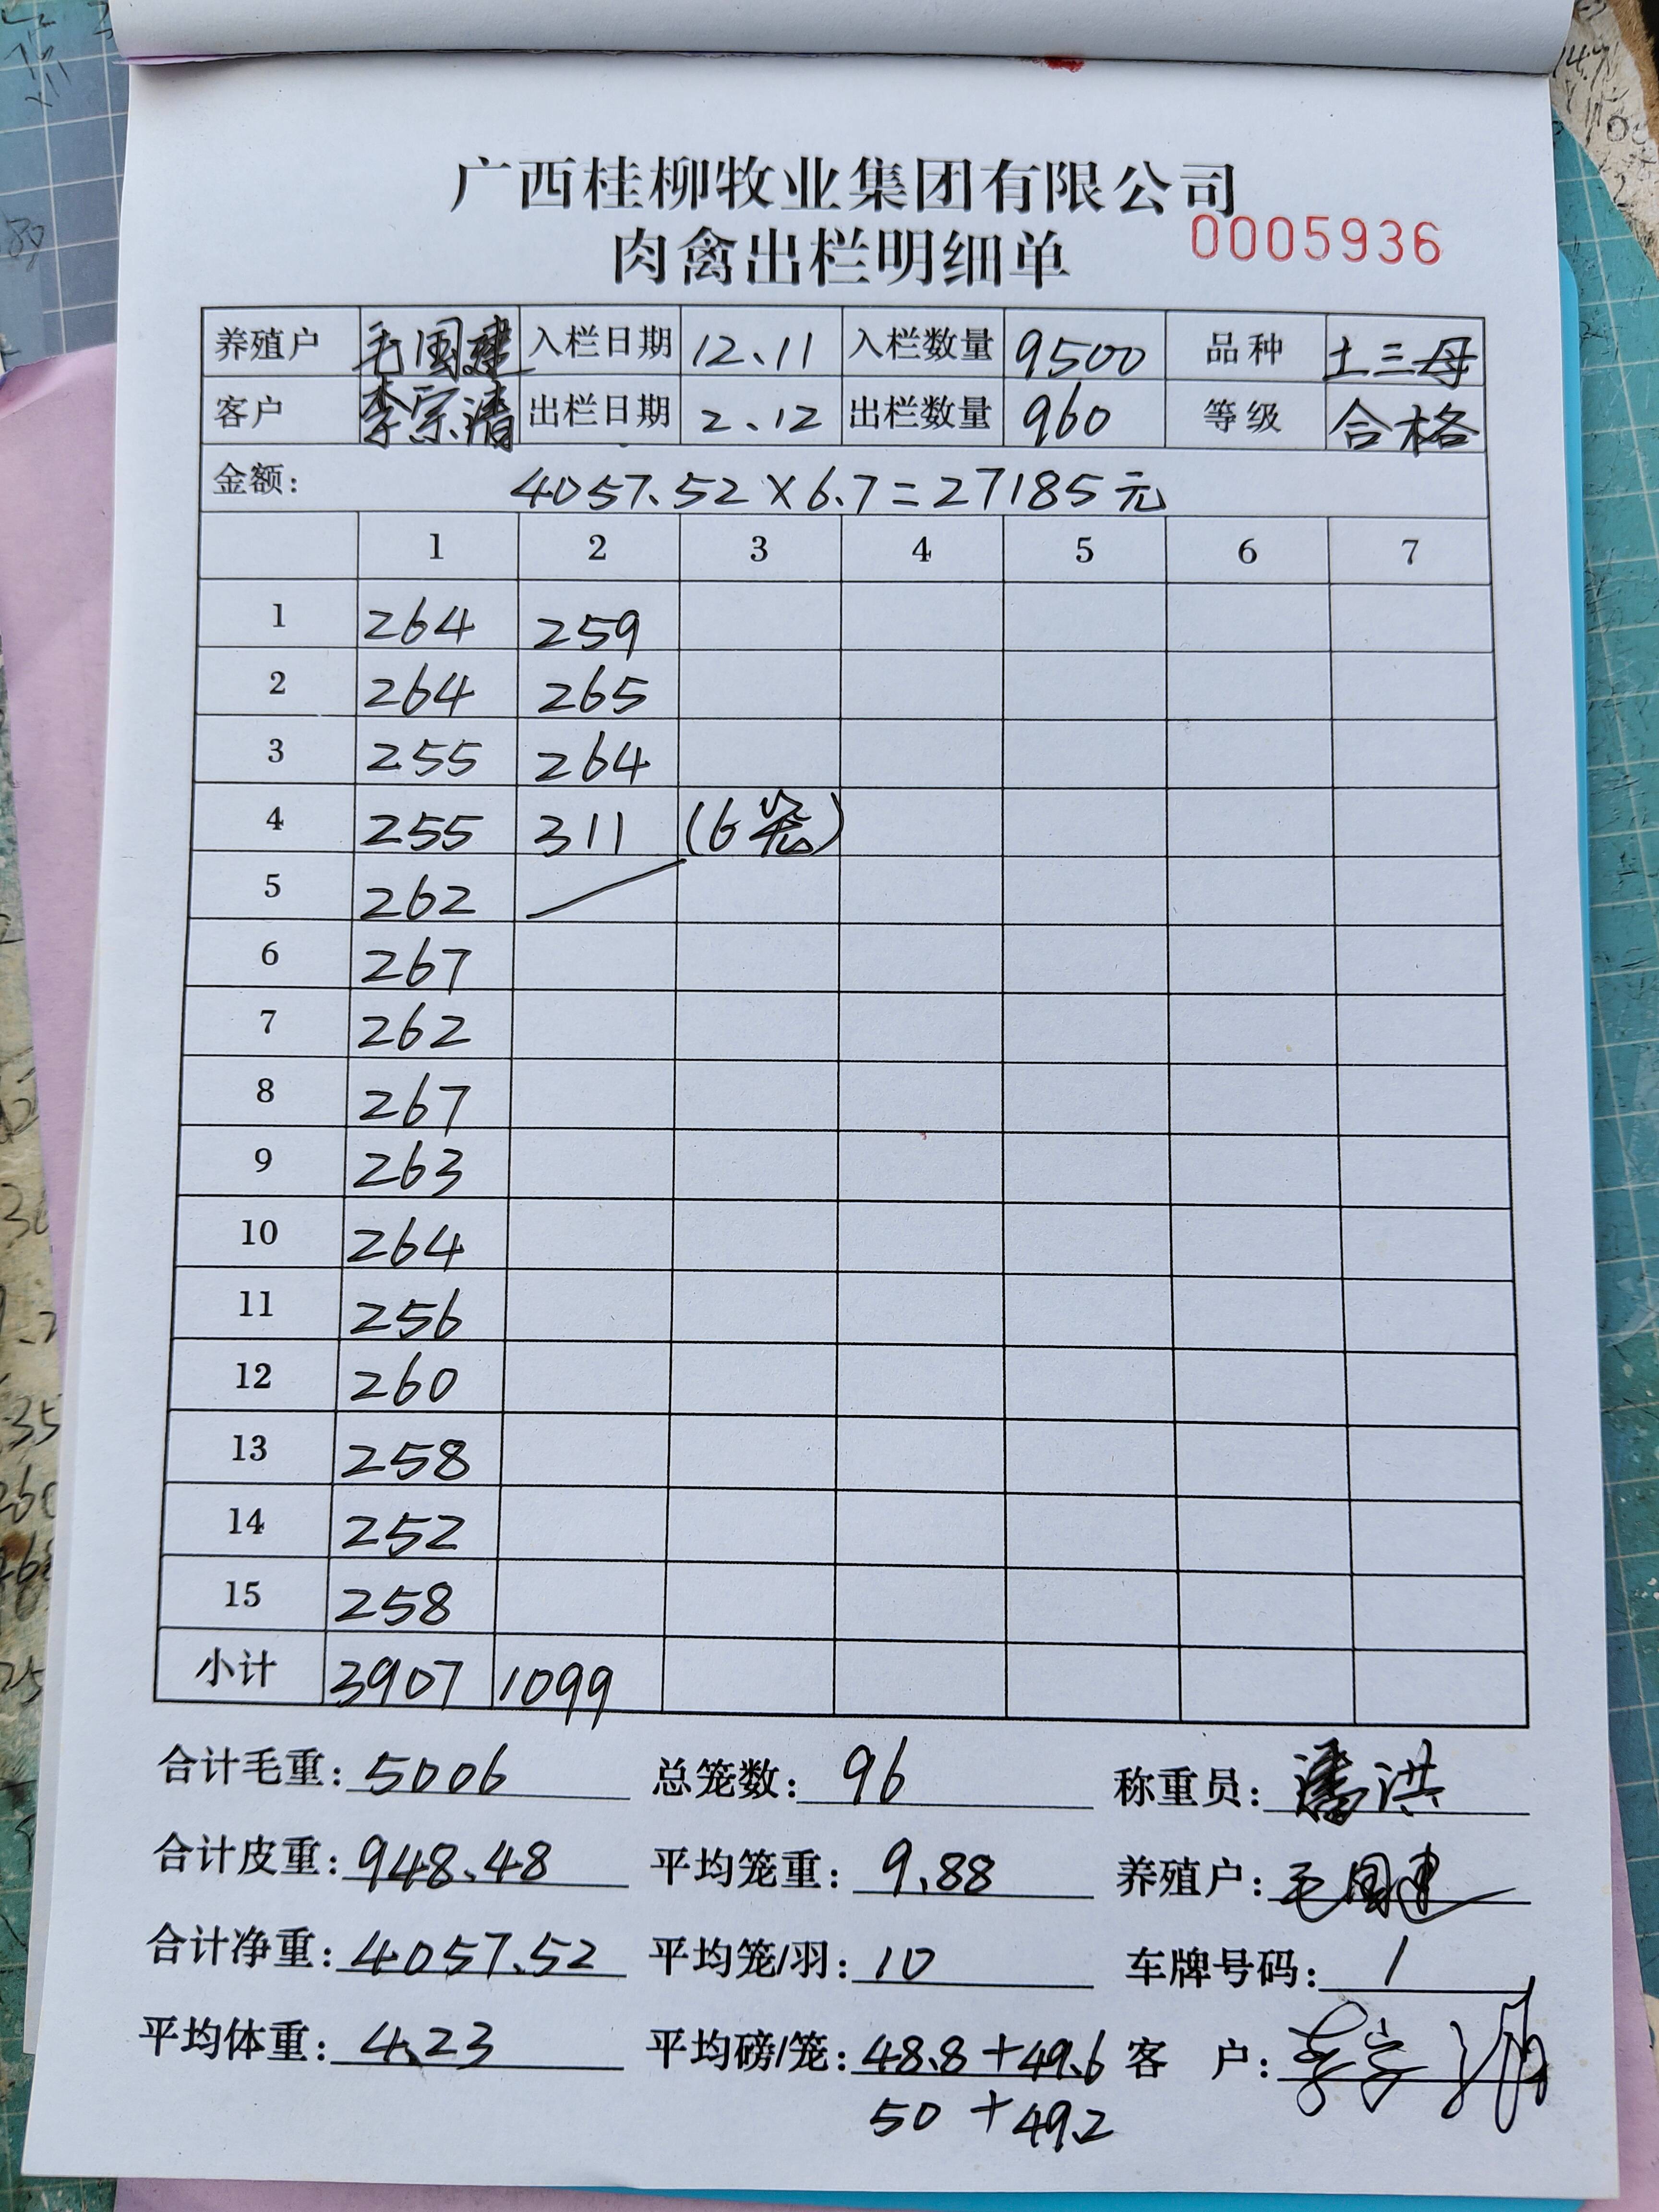 广西桂柳牧业集团有限公司
肉禽出栏明细单 0005936
养殖户 毛国建 入栏日期 12.11 入栏数量 9500 品种 土三母
客户 李宗清 出栏日期 2.12 出栏数量 960 等级 合格
金额: 4057.52×6.7=27185元
1 2 3 4 5 6 7
1 264 259
2 264 265
3 255 264
4 255 311 (6笼)
5 262
6 267
7 262
8 267
9 263
10 264
11 256
12 260
13 258
14 252
15 258
小计 3907 1099
合计毛重: 5006 总笼数: 96 称重员: 潘洪
合计皮重: 948.48 平均笼重: 9.88 养殖户: 毛国建
合计净重: 4057.52 平均笼/羽: 10 车牌号码: 1
平均体重: 4.23 平均磅/笼: 48.8+49.6 客 户: 李宗清
50+49.2